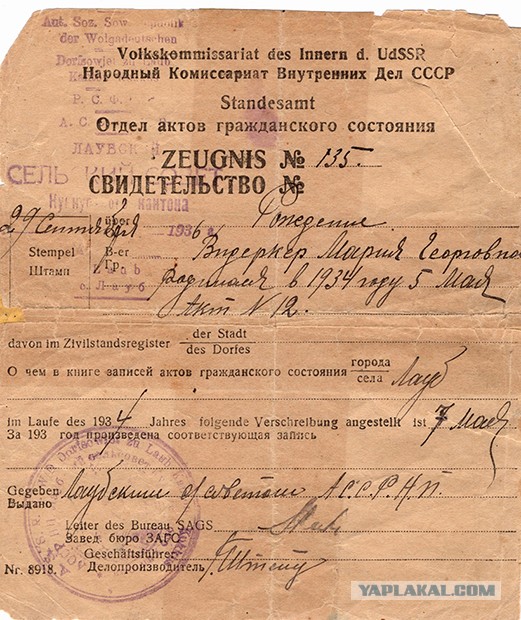 Aut. Soz. Sow
der Wolgadeutschen
Dorfsowjet zu Laub
Р. С. Ф.
А. С.
ЛАУБСК
СЕЛЬ
кантона
Volkskommissariat des Innern d. UdSSR
Народный Комиссариат Внутренних Дел СССР
Standesamt
Отдел актов гражданского состояния
ZEUGNIS № 135.
СВИДЕТЕЛЬСТВО №
29 Сентября 1936
Рождение
В-ег
Гр.
Видеркер Мария Георговна
Stempel
Штамп
с. Лауб
родилася в 1934 году 5 Мая
Акт N 12.
davon im Zivilstandsregister der Stadt
des Dorfes
О чем в книге записей актов гражданского состояния города
села Лауб
im Laufe des 1934 Jahres folgende Verschreibung angestellt ist 7 Мая
За 193 год произведена соответствующая запись
Gegeben
Выдано
Лаубским с/советом АССРНП.
Leiter des Bureau SAGS
Завед. бюро ЗАГС
Geschäftsführer
Делопроизводитель
Nr. 8918.
YAPLAKAL.COM